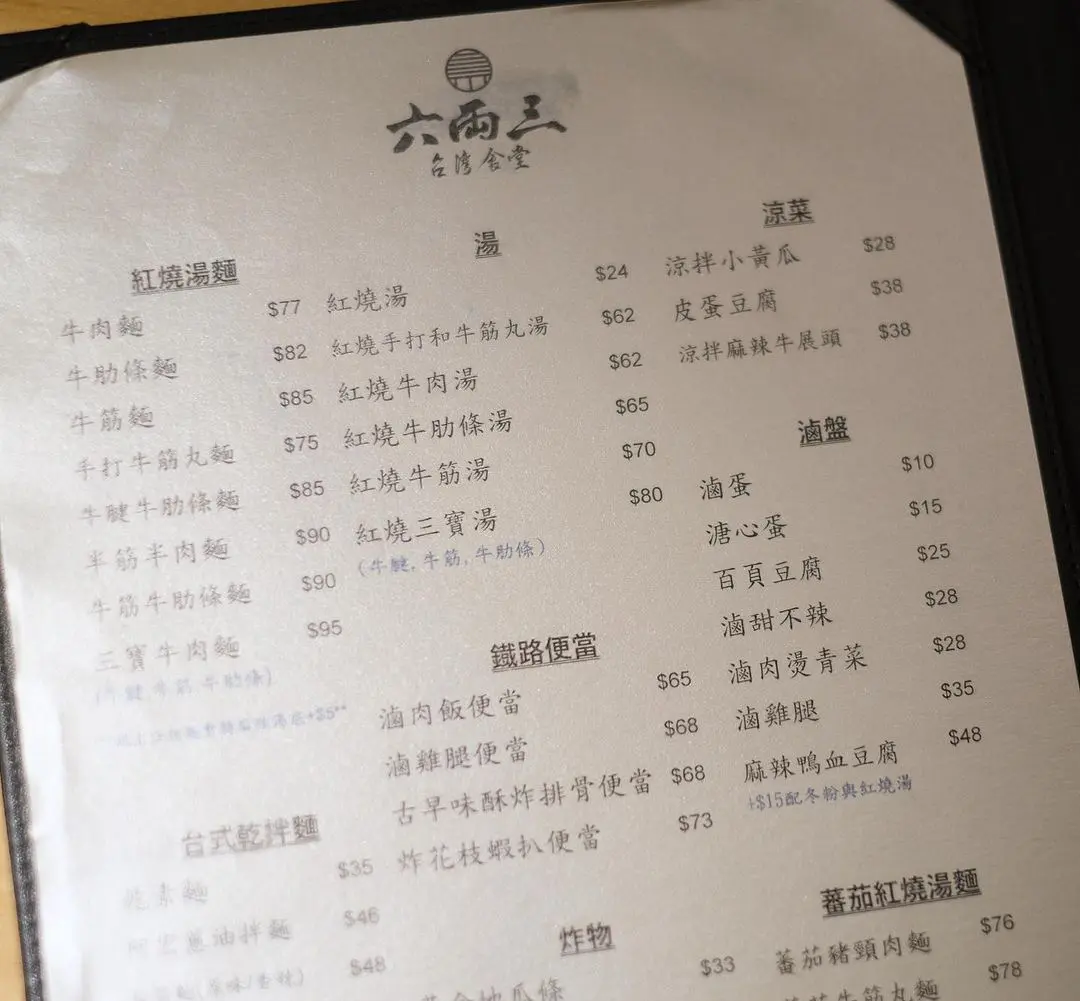 六兩三
台灣食堂
紅燒湯麵
牛肉麵 $77
牛肋條麵 $82
牛筋麵 $85
手打牛筋丸麵 $75
牛腱牛肋條麵 $85
半筋半肉麵 $90
牛筋牛肋條麵 $90
三寶牛肉麵 $95
(牛腱,牛筋,牛肋條)
+$5**
台式乾拌麵
素麵 $35
蔥油拌麵 $46
$48
湯
紅燒湯 $24
紅燒手打和牛筋丸湯 $62
紅燒牛肉湯 $62
紅燒牛肋條湯 $65
紅燒牛筋湯 $70
紅燒三寶湯 $80
(牛腱,牛筋,牛肋條)
鐵路便當
滷肉飯便當 $65
滷雞腿便當 $68
古早味酥炸排骨便當 $68
炸花枝蝦扒便當 $73
炸物
地瓜條 $33
涼菜
涼拌小黃瓜 $28
皮蛋豆腐 $38
涼拌麻辣牛展頭 $38
滷盤
滷蛋 $10
溏心蛋 $15
百頁豆腐 $25
滷甜不辣 $28
滷肉燙青菜 $28
滷雞腿 $35
麻辣鴨血豆腐 $48
+$15配冬粉與紅燒湯
蕃茄紅燒湯麵
蕃茄豬頸肉麵 $76
牛筋丸麵 $78